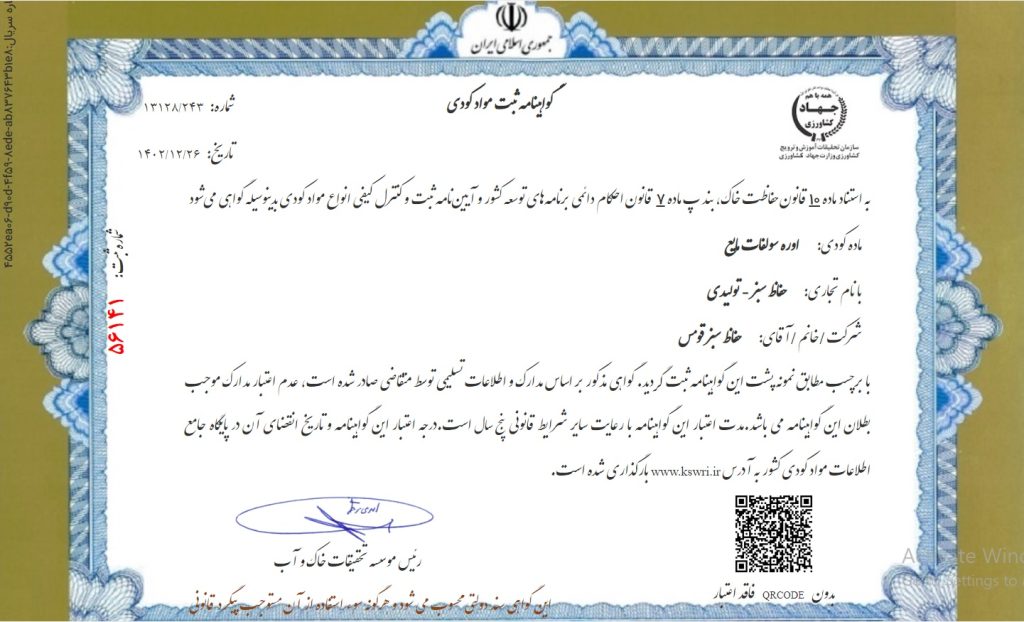 جمهوری اسلامی ایران
همه با هم
جهاد
کشاورزی
سازمان تحقیقات آموزش و ترویج
کشاورزی وزارت جهاد کشاورزی
گواهینامه ثبت مواد کودی
شماره: ۱۳۱۲۸/۲۴۳
تاریخ: ۱۴۰۲/۱۲/۲۶
به استناد ماده ۱۰ قانون حفاظت خاک، بند پ ماده ۷ قانون احکام دائمی برنامه های توسعه کشور و آیین نامه ثبت و کنترل کیفی انواع مواد کودی بدینوسیله گواهی می شود
ماده کودی: اوره سولفات مایع
با نام تجاری: حفاظ سبز - تولیدی
شرکت / خانم / آقای: حفاظ سبز قومس
با برچسب مطابق نمونه پشت این گواهینامه ثبت گردید. گواهی مذکور بر اساس مدارک و اطلاعات تسلیمی توسط متقاضی صادر شده است، عدم اعتبار مدارک موجب
بطلان این گواهینامه می باشد.مدت اعتبار این گواهینامه با رعایت سایر شرایط قانونی پنج سال است.درجه اعتبار این گواهینامه و تاریخ انقضای آن در پایگاه جامع
اطلاعات مواد کودی کشور به آدرس www.kswri.ir بارگذاری شده است.
رئیس موسسه تحقیقات خاک و آب
بدون QRCODE فاقد اعتبار
این گواهی سند دولتی محسوب می شود و هرگونه سوء استفاده از آن مستوجب پیگرد قانونی
شماره ثبت: ۵۶۱۴۱